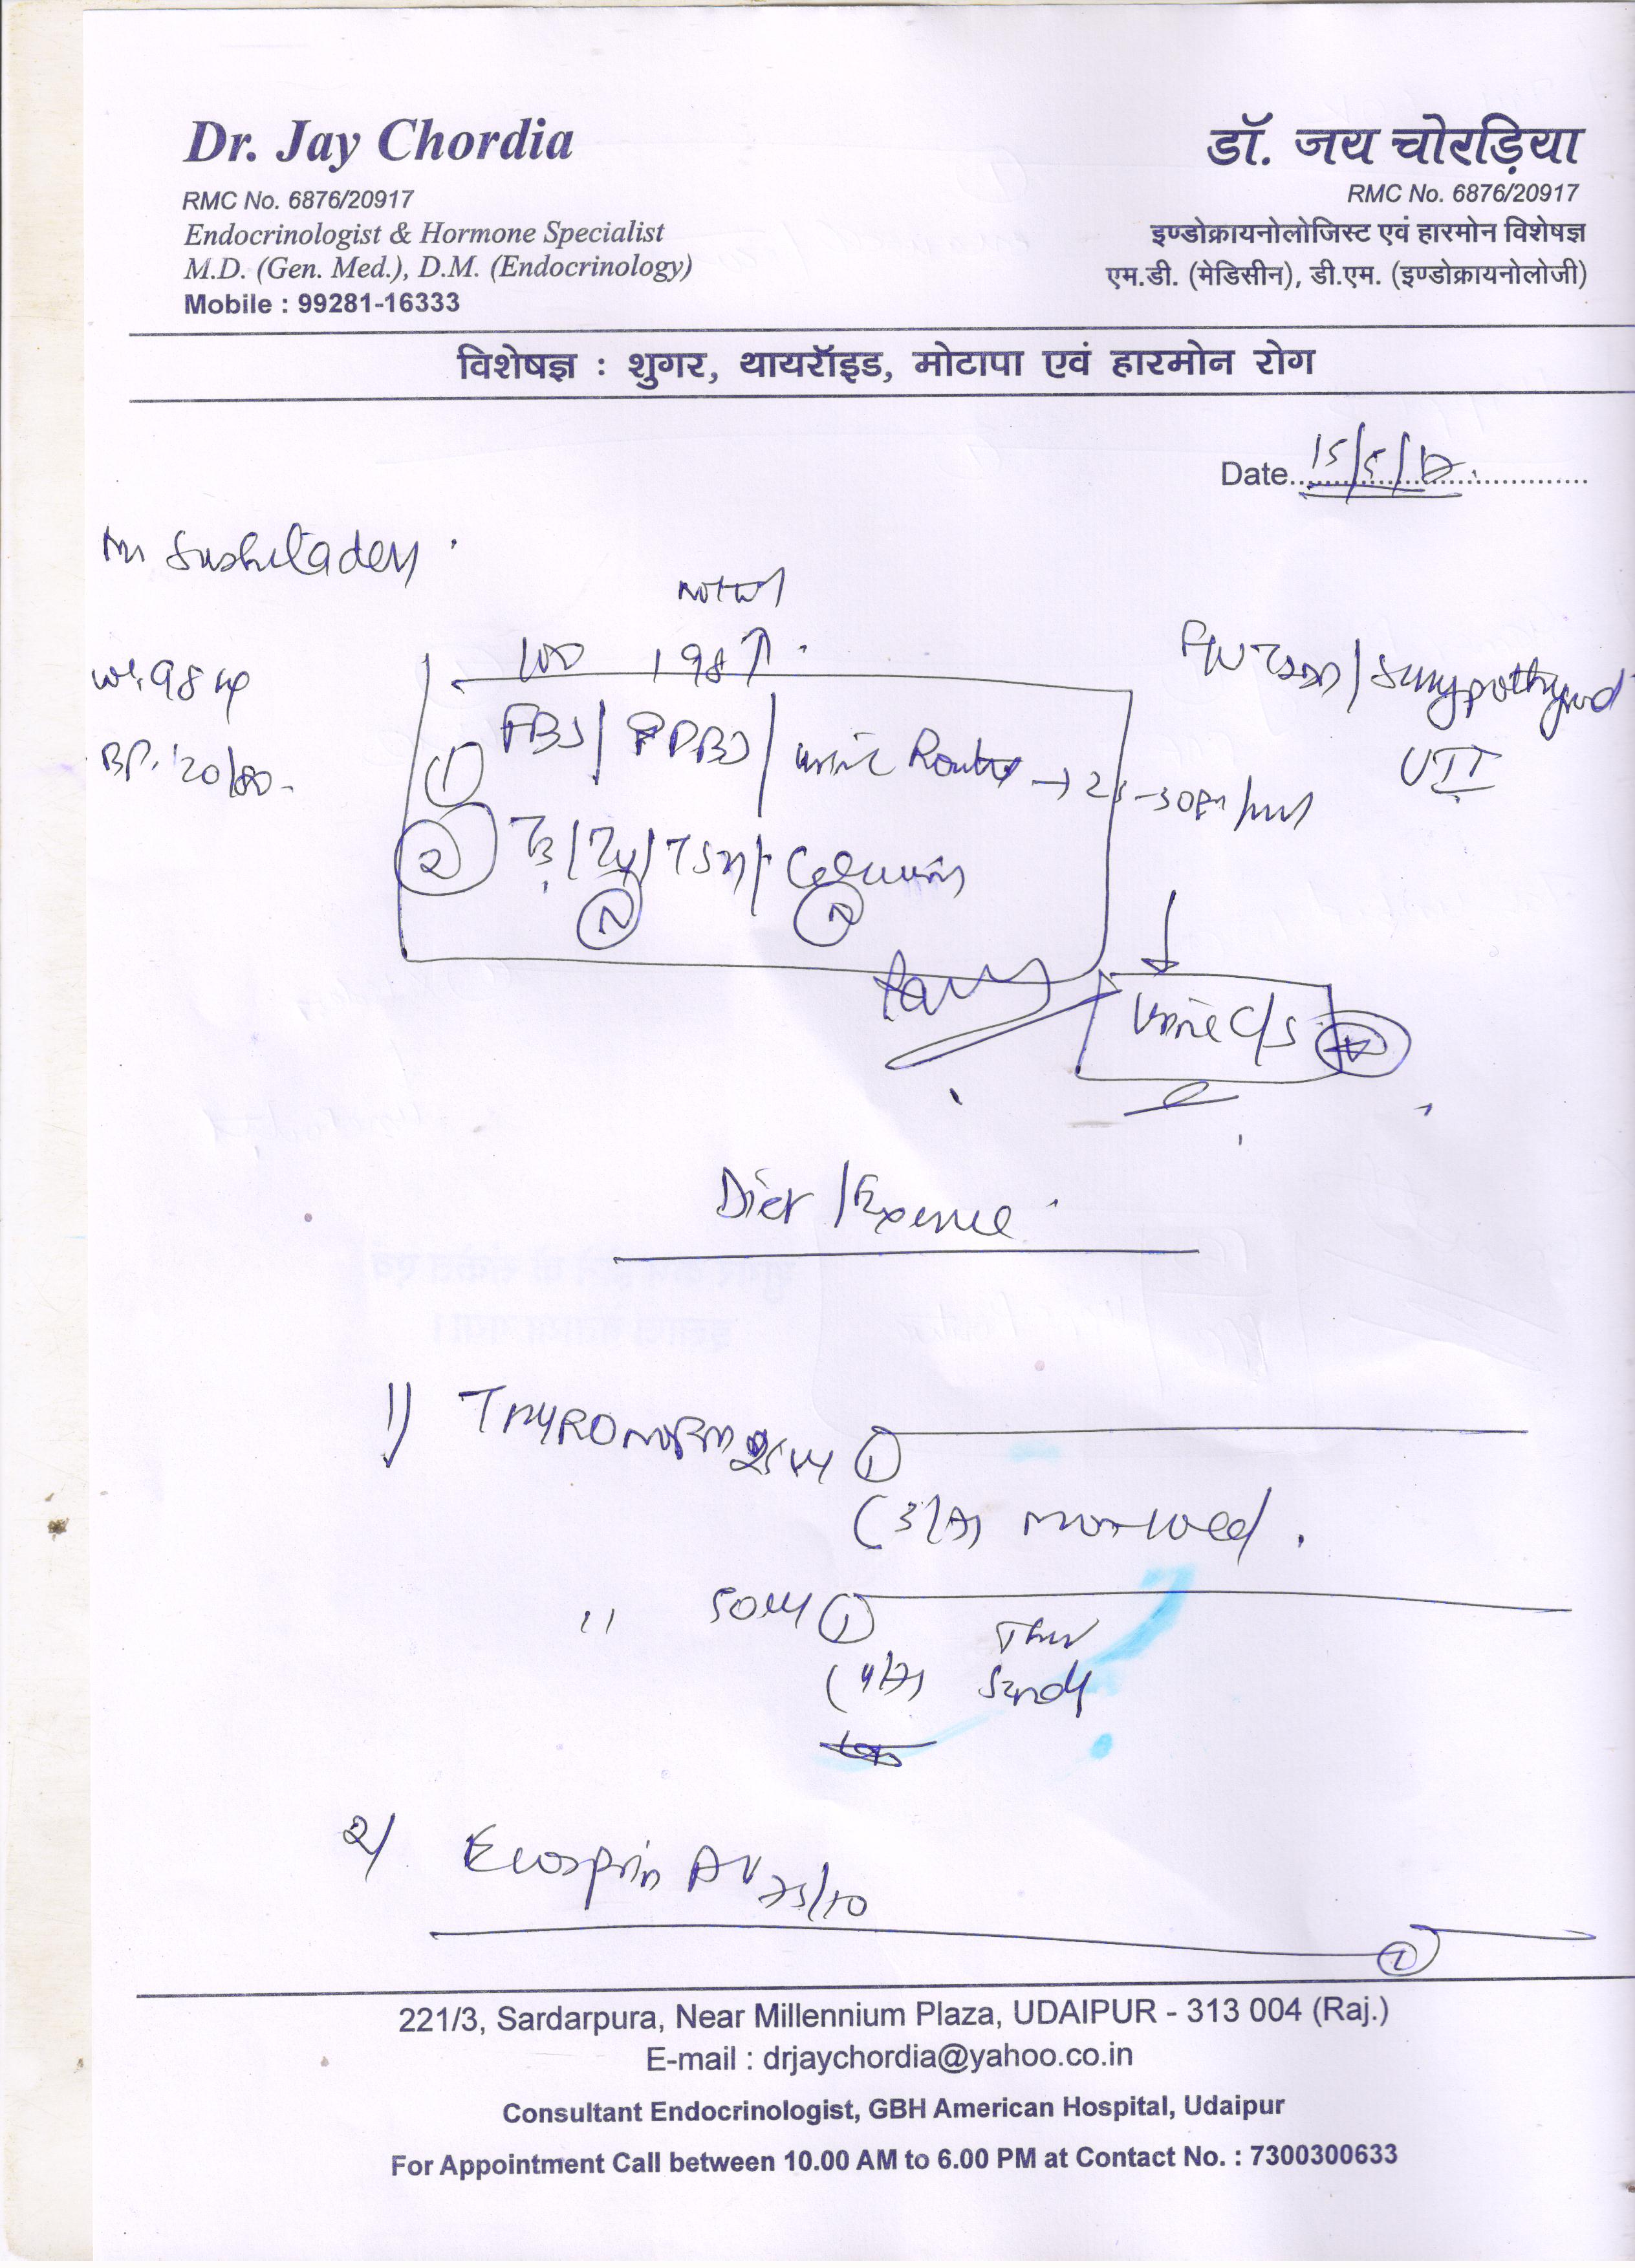 Dr. Jay Chordia
RMC No. 6876/20917
Endocrinologist & Hormone Specialist
M.D. (Gen. Med.), D.M. (Endocrinology)
Mobile : 99281-16333
डॉ. जय चोरड़िया
RMC No. 6876/20917
इण्डोक्रायनोलोजिस्ट एवं हारमोन विशेषज्ञ
एम.डी. (मेडिसीन), डी.एम. (इण्डोक्रायनोलोजी)
विशेषज्ञ : शुगर, थायरॉइड, मोटापा एवं हारमोन रोग
Date 15/5/
Sushiladevi
198↑
wt. 98 kg
FBS / PPBS / urine Routine → 25-30
UTI
BP. 120/80
①
② T3/T4/TSH/ Calcium
N N
Urine C/S
Diet / Exercise
1) THYRONORM 25 ①
(3/7) Mon-Wed.
" 50 ①
(4/7) Thur
Sunday
2) Ecosprin AV 75/10
①
221/3, Sardarpura, Near Millennium Plaza, UDAIPUR - 313 004 (Raj.)
E-mail : drjaychordia@yahoo.co.in
Consultant Endocrinologist, GBH American Hospital, Udaipur
For Appointment Call between 10.00 AM to 6.00 PM at Contact No. : 7300300633